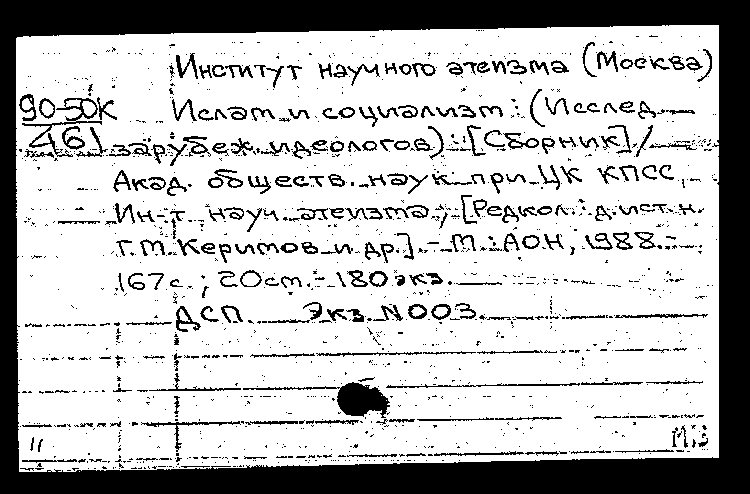 Институт научного атеизма (Москва)
90-50К
461
Ислам и социализм: (Исслед.
зарубеж. идеологов): [Сборник] /
Акад. обществ. наук при ЦК КПСС,
Ин-т науч. атеизма; [Редкол.: д.ист.н.
Г.М. Керимов и др.]. - М.: АОН, 1988. -
167 с.; 20 см. - 180 экз.
ДСП. Экз. N 003.